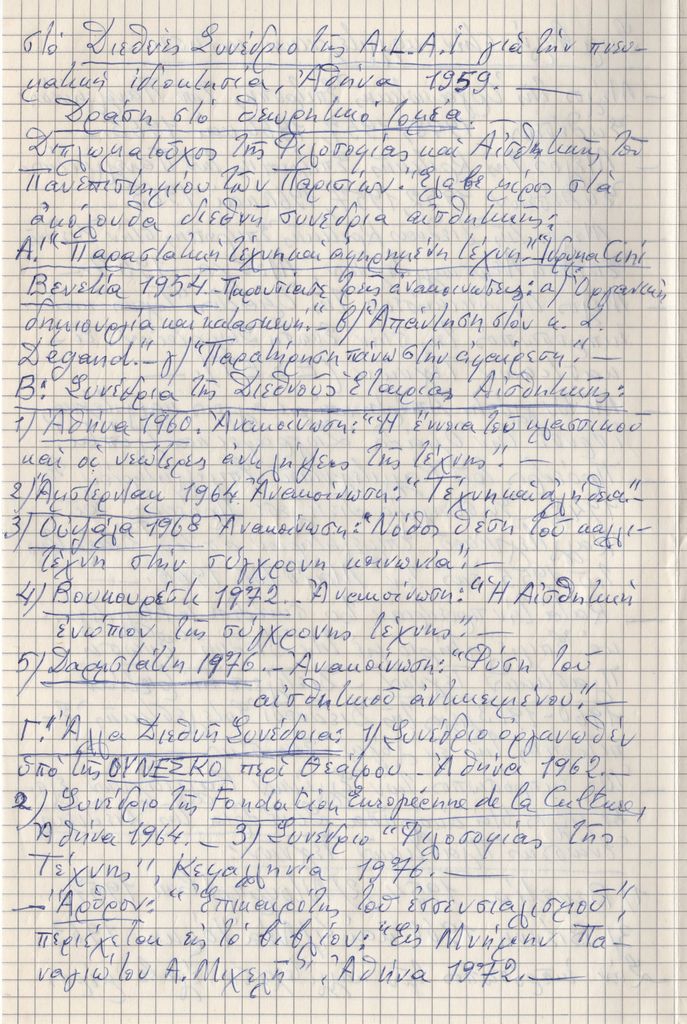 στό Διεθνές Συνέδριο τῆς A.L.A.I γιά τήν πνευ-
ματική ἰδιοκτησία, Ἀθήνα 1959. —
Δράση στό θεωρητικό τομέα.
Διπλωματοῦχος τῆς Φιλοσοφίας καί Αἰσθητικῆς τοῦ
Πανεπιστημίου τῶν Παρισίων. Ἔλαβε μέρος στά
ἀκόλουθα διεθνῆ συνέδρια αἰσθητικῆς:
Α: "Παραστατική τέχνη καί ἀφηρημένη τέχνη". Ἵδρυμα Cini
Βενετία 1954. Παρουσίασε τρεῖς ἀνακοινώσεις: α) "Ὀργανική
δημιουργία καί κατασκευή". — β) "Ἀπάντηση στόν κ. L.
Degand". — γ) "Παρατήρηση πάνω στήν ἀφαίρεση". —
Β: Συνέδρια τῆς Διεθνοῦς Ἑταιρίας Αἰσθητικῆς:
1) Ἀθήνα 1960. Ἀνακοίνωση: "Ἡ ἔννοια τοῦ πλαστικοῦ
καί οἱ νεώτερες ἀντιλήψεις τῆς τέχνης". —
2) Ἄμστερνταμ 1964. Ἀνακοίνωση: "Τέχνη καί ἀλήθεια". —
3) Οὐψάλα 1968 Ἀνακοίνωση: "Νόθος θέση τοῦ καλλι-
τέχνη στήν σύγχρονη κοινωνία". —
4) Βουκουρέστι 1972. — Ἀνακοίνωση: "Ἡ Αἰσθητική
ἐνώπιον τῆς σύγχρονης τέχνης". —
5) Νταρμστάττη 1976. — Ἀνακοίνωση: "Φύση τοῦ
αἰσθητικοῦ ἀντικειμένου". —
Γ: Ἄλλα Διεθνῆ Συνέδρια: 1) Συνέδριο ὀργανωθέν
ὑπό τῆς ΟΥΝΕΣΚΟ περί Θεάτρου. Ἀθήνα 1962. —
2) Συνέδριο τῆς Fondation Européenne de la Culture,
Ἀθήνα 1964. — 3) Συνέδριο "Φιλοσοφίας τῆς
Τέχνης", Κεφαλληνία 1976. —
— Ἄρθρον: "Ἐπικαιρότης τοῦ ἐσσενσιαλισμοῦ",
περιέχεται εἰς τό βιβλίον: "Εἰς Μνήμην Πα-
ναγιώτου Α. Μιχελῆ", Ἀθήνα 1972. —